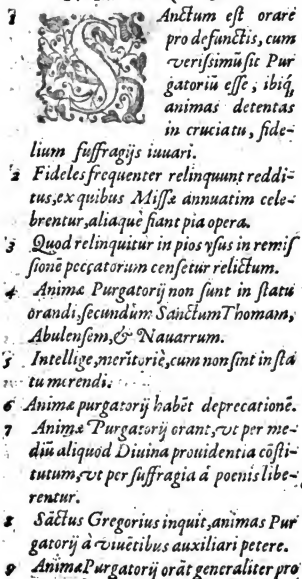 1 SAnctum est orare
pro defunctis, cum
verisimũ sit Pur
gatoriũ esse, ibiq́,
animas detentas
in cruciatu, fide-
lium suffragijs iuuari.
2 Fideles frequenter relinquunt reddi-
tus, ex quibus Missæ annuatim cele-
brentur, aliaquè fiant pia opera.
3 Quod relinquitur in pios vsus in remis
sionẽ peccatorum censetur relictum.
4 Animæ Purgatorij non sunt in statu
orandi, secundùm Sanctum Thomam,
Abulensem, & Nauarrum.
5 Intellige, meritoriè, cum non sint in sta
tu merendi.
6 Animæ purgatorij habẽt deprecationẽ.
7 Animæ Purgatorij orant, vt per me-
diũ aliquod Diuina prouidentia cõsti-
tutum, vt per suffragia à poenis libe-
rentur.
8 Sãctus Gregorius inquit, animas Pur
gatorij à viuẽtibus auxiliari petere.
9 Animæ Purgatorij orãt generaliter pro